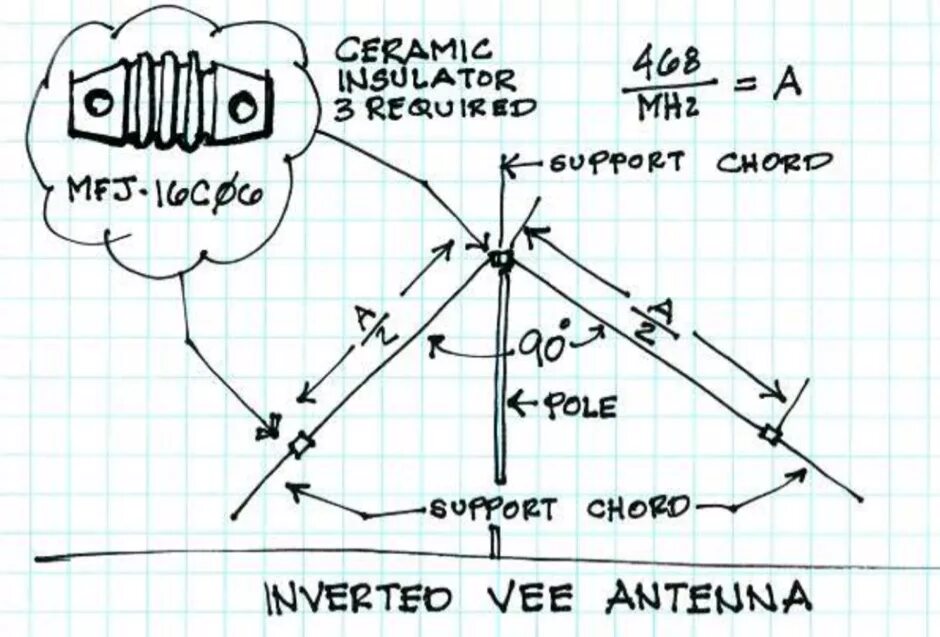 CERAMIC
INSULATOR
3 REQUIRED
468
MHz
= A
MFJ-16C06
SUPPORT CHORD
A/2
A/2
90°
POLE
SUPPORT CHORD
INVERTED VEE ANTENNA